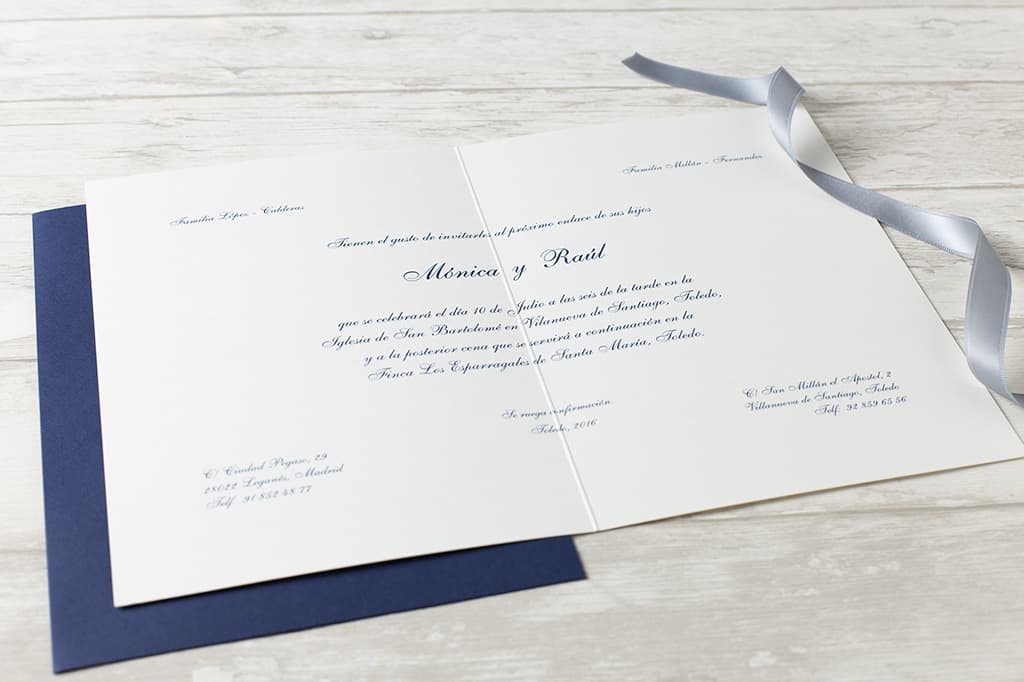 Familia López - Calderas
Familia Millán - Fernandez
Tienen el gusto de invitarles al próximo enlace de sus hijos
Mónica y Raúl
que se celebrará el día 10 de Julio a las seis de la tarde en la
Iglesia de San Bartolomé en Vilanueva de Santiago, Toledo,
y a la posterior cena que se servirá a continuación en la
Finca Los Esparragales de Santa María, Toledo.
Se ruega confirmación.
Toledo, 2016
C/ Ciudad Pegaso, 29
28022 Leganés, Madrid
Telf. 91 852 48 77
C/ San Millán el Apostol, 2
Villanueva de Santiago, Toledo
Telf: 92 859 65 56